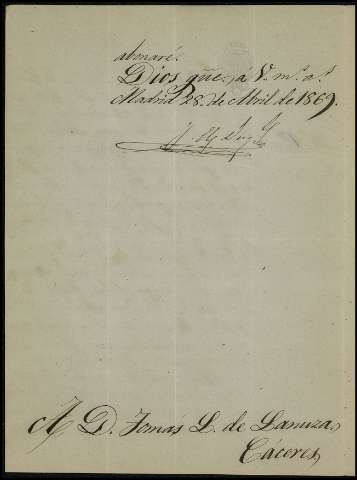 abonaré.
Dios gũe. á V. m.s a.s
Madrid 28. de Abril de 1869.
A D. Tomás L. de Lanuza,
Cáceres,